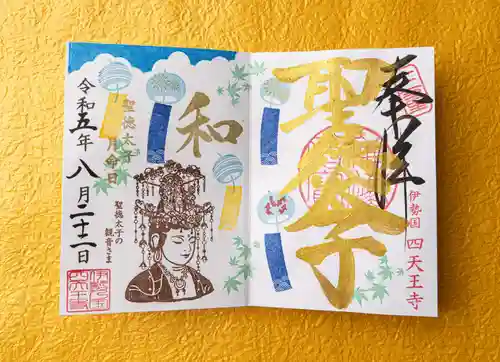 奉拝
聖徳太子
伊勢国 四天王寺
和
聖徳太子
月命日
聖徳太子の
観音さま
令和五年 八月二十二日